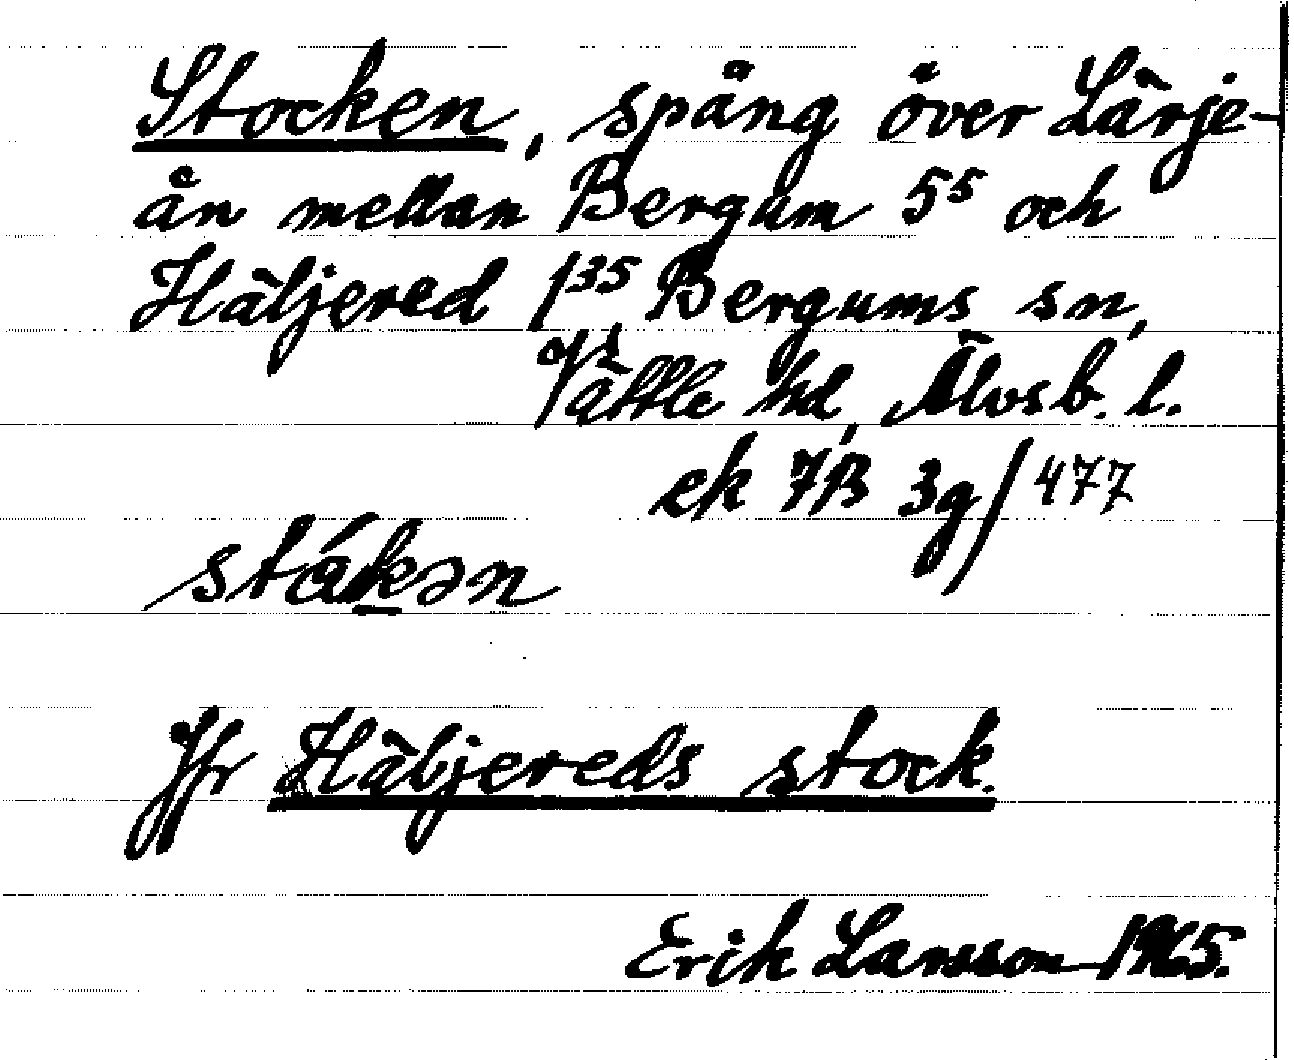 Stocken, spång över Lärje-
ån mellan Bergum 5⁵ och
Häljered 1³⁵ Bergums sn,
Vättle hd, Älvsb. l.
ek 7B 3g/477
ståkən
Jfr Häljereds stock.
Erik Larsson 1965.